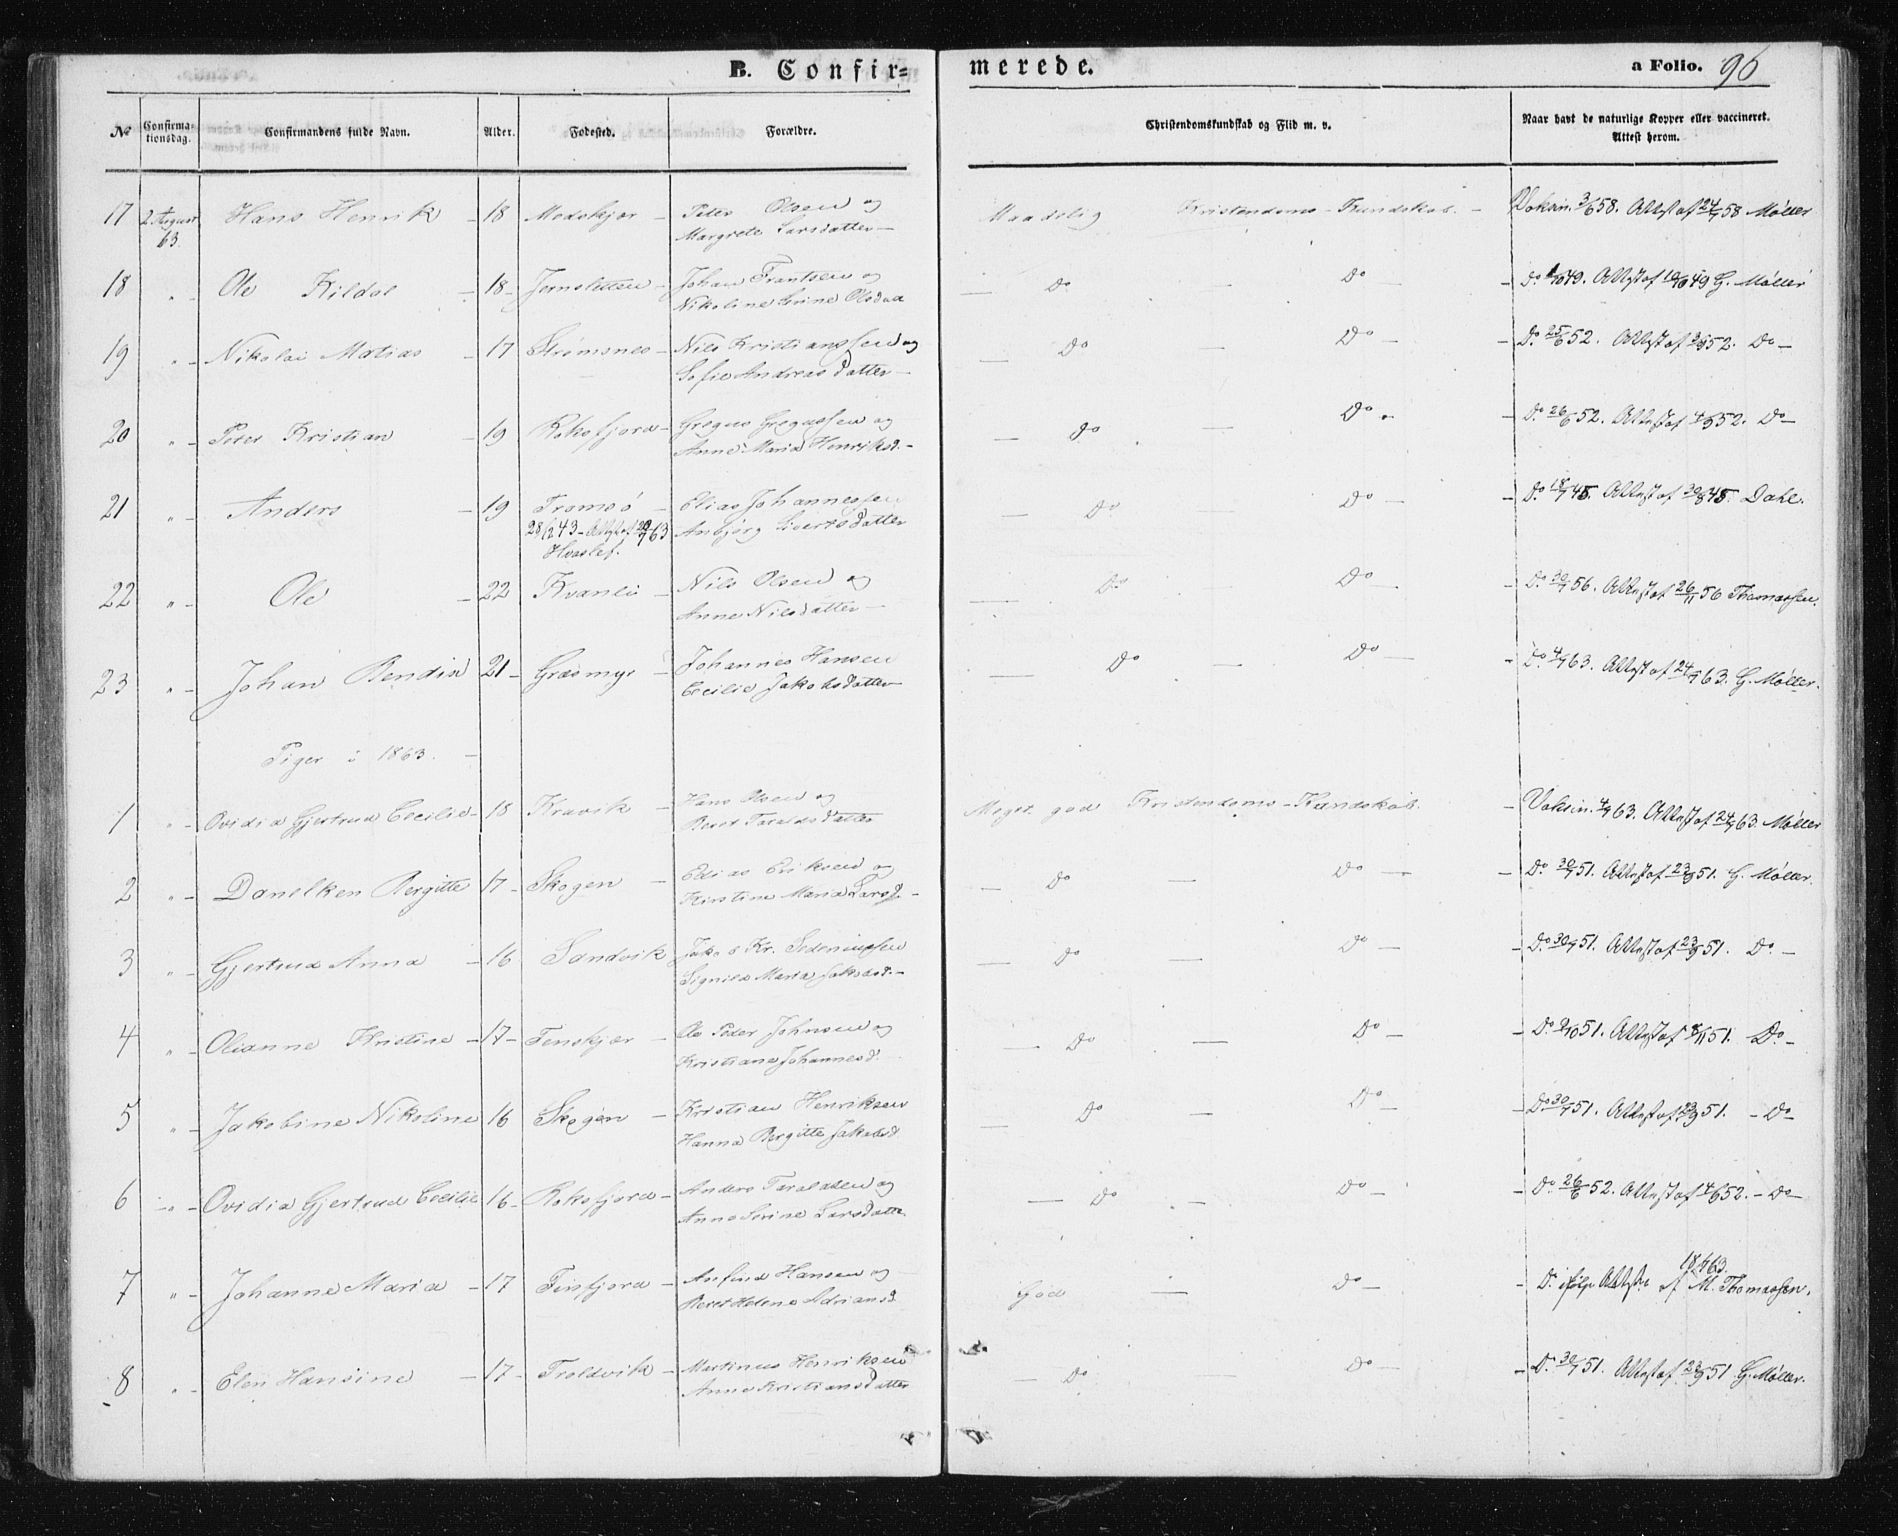 B. Confir= merede. a Folio. 96
No Confirma-tionsdag. Confirmandens fulde Navn. Alder. Fødested. Forældre. Christendomskundskab og Flid m. v. Naar havt de naturlige Kopper eller vaccineret. Attest herom.
17 2 August 63. Hans Henrik – 18 Medskjær – Peter Olsen og Maadelig Kristendoms-Kundskab. – Vaksin. 3/6 58. Attest af 24/7 58 Møller
Margrete Larsdatter –
18 " Ole Kildal – 18 – Jernsletten – Johan Frantsen og – Do Do – Do 49. Attest af 49 G. Møller
Nikoline Serine Olsdat
19 " Nikolai Matias – 17 Strømsnes – Nils Kristianssen og – Do – Do – – Do 25/6 52. Attest af 52. Do –
Sofie Andreasdatter –
20 " Peter Kristian – 19 Roksfjord – Gregus Gregussen og – Do – Do – – Do 26/6 52. Attest af 4/9 52. Do –
Anne Maria Henriksd. –
21 " Anders – 19 Tromsø – Elias Johannessen – Do – Do – – Do 18/7 45. Attest af 30/8 45. Dahl.
43 – Attest af 63 Anbjørg Sivertsdatter
22 " Ole – 22 Kvanli – Nils Olsen og – Do – Do – – Do 30/7 56. Attest af 26/11 56 Thomassen.
Anne Nilsdatter –
23 " Johan Bendix 21 – Græsmyr – Johannes Hansen – Do – Do – – Do 4/7 63. Attest af 24/7 63. G. Møller.
Cecilie Jakobsdatter
Piger i 1863. –
1 " Ovidia Gjertrud Cecilie – 18 Kravik – Hans Olsen og Meget god Kristendoms-Kundskab. – Vaksin. 4/7 63. Attest af 24/7 63. Møller
Beret Taraldsdatter
2 " Danelken Bergitte 17 – Skogen – Edias Eriksen og – Do Do – – Do 30/7 51. Attest af 23/9 51. G. Møller.
Kirstine Maria Larsd. –
3 " Gjertrud Anna – 16 Sandvik Jakob Kr. – Do – Do – – Do 30/7 51. Attest af 23/9 51. Do. –
Signild Maria Jakobsd. –
4 " Olianne Kristine – 17 – Finskjær – Ole Peder Johnsen og – Do – Do – – Do 9/10 51. Attest af 8/11 51. Do –
Kristiane Johannesd.
5 " Jakobine Nikoline 16 Skogen – Kristian Henriksen Do – Do – – Do 30/7 51. Attest af 23/9 51. – Do
Hanna Bergitte Jakobsd.
6 – " – Ovidia Gjertrud Cecilie 16 – Roksfjord – Anders Taraldsen og – Do – Do – – Do 26/6 52. Attest af 4/6 52. – Do –
Anne Serine Larsdatte
7 " Johanne Maria – 17 Finfjord – Anfind Hansen og God – Do – – Do ifølge Attest 18/7 63. af M. Thomassen.
Beret Helene Adriansd.
8 " Elen Hansine – 17 – Troldvik – Martinus Henriksen – Do – Do – – Do 30/7 51. Attest af 23/9 51 G. Møller.
Anne Kristiansdatter